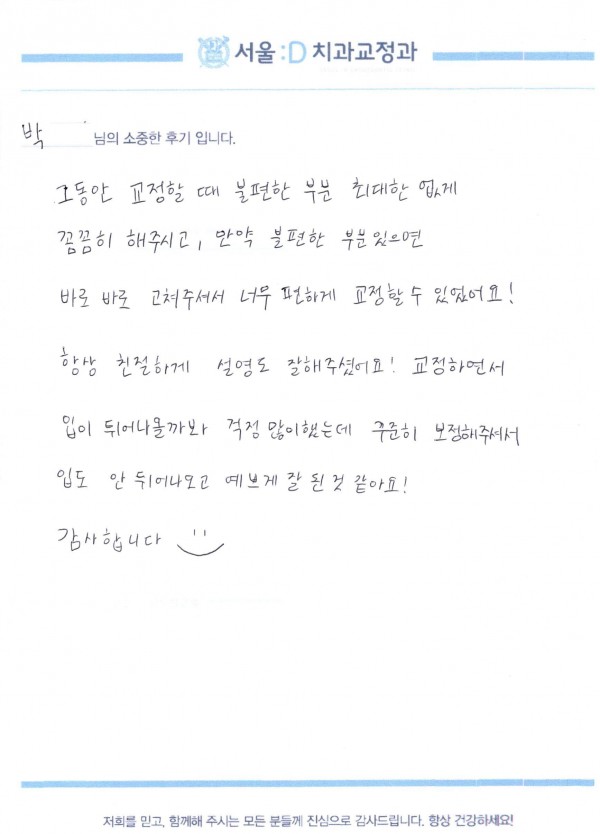 서울:D 치과교정과
박 님의 소중한 후기 입니다.
그동안 교정할 때 불편한 부분 최대한 없게
꼼꼼히 해주시고, 만약 불편한 부분있으면
바로 바로 고쳐주셔서 너무 편하게 교정할 수 있었어요!
항상 친절하게 설명도 잘해주셨어요! 교정하면서
입이 튀어나올까봐 걱정 많이했는데 꾸준히 보정해주셔서
입도 안 튀어나오고 예쁘게 잘 된 것 같아요!
감사합니다
저희를 믿고, 함께해 주시는 모든 분들께 진심으로 감사드립니다. 항상 건강하세요!